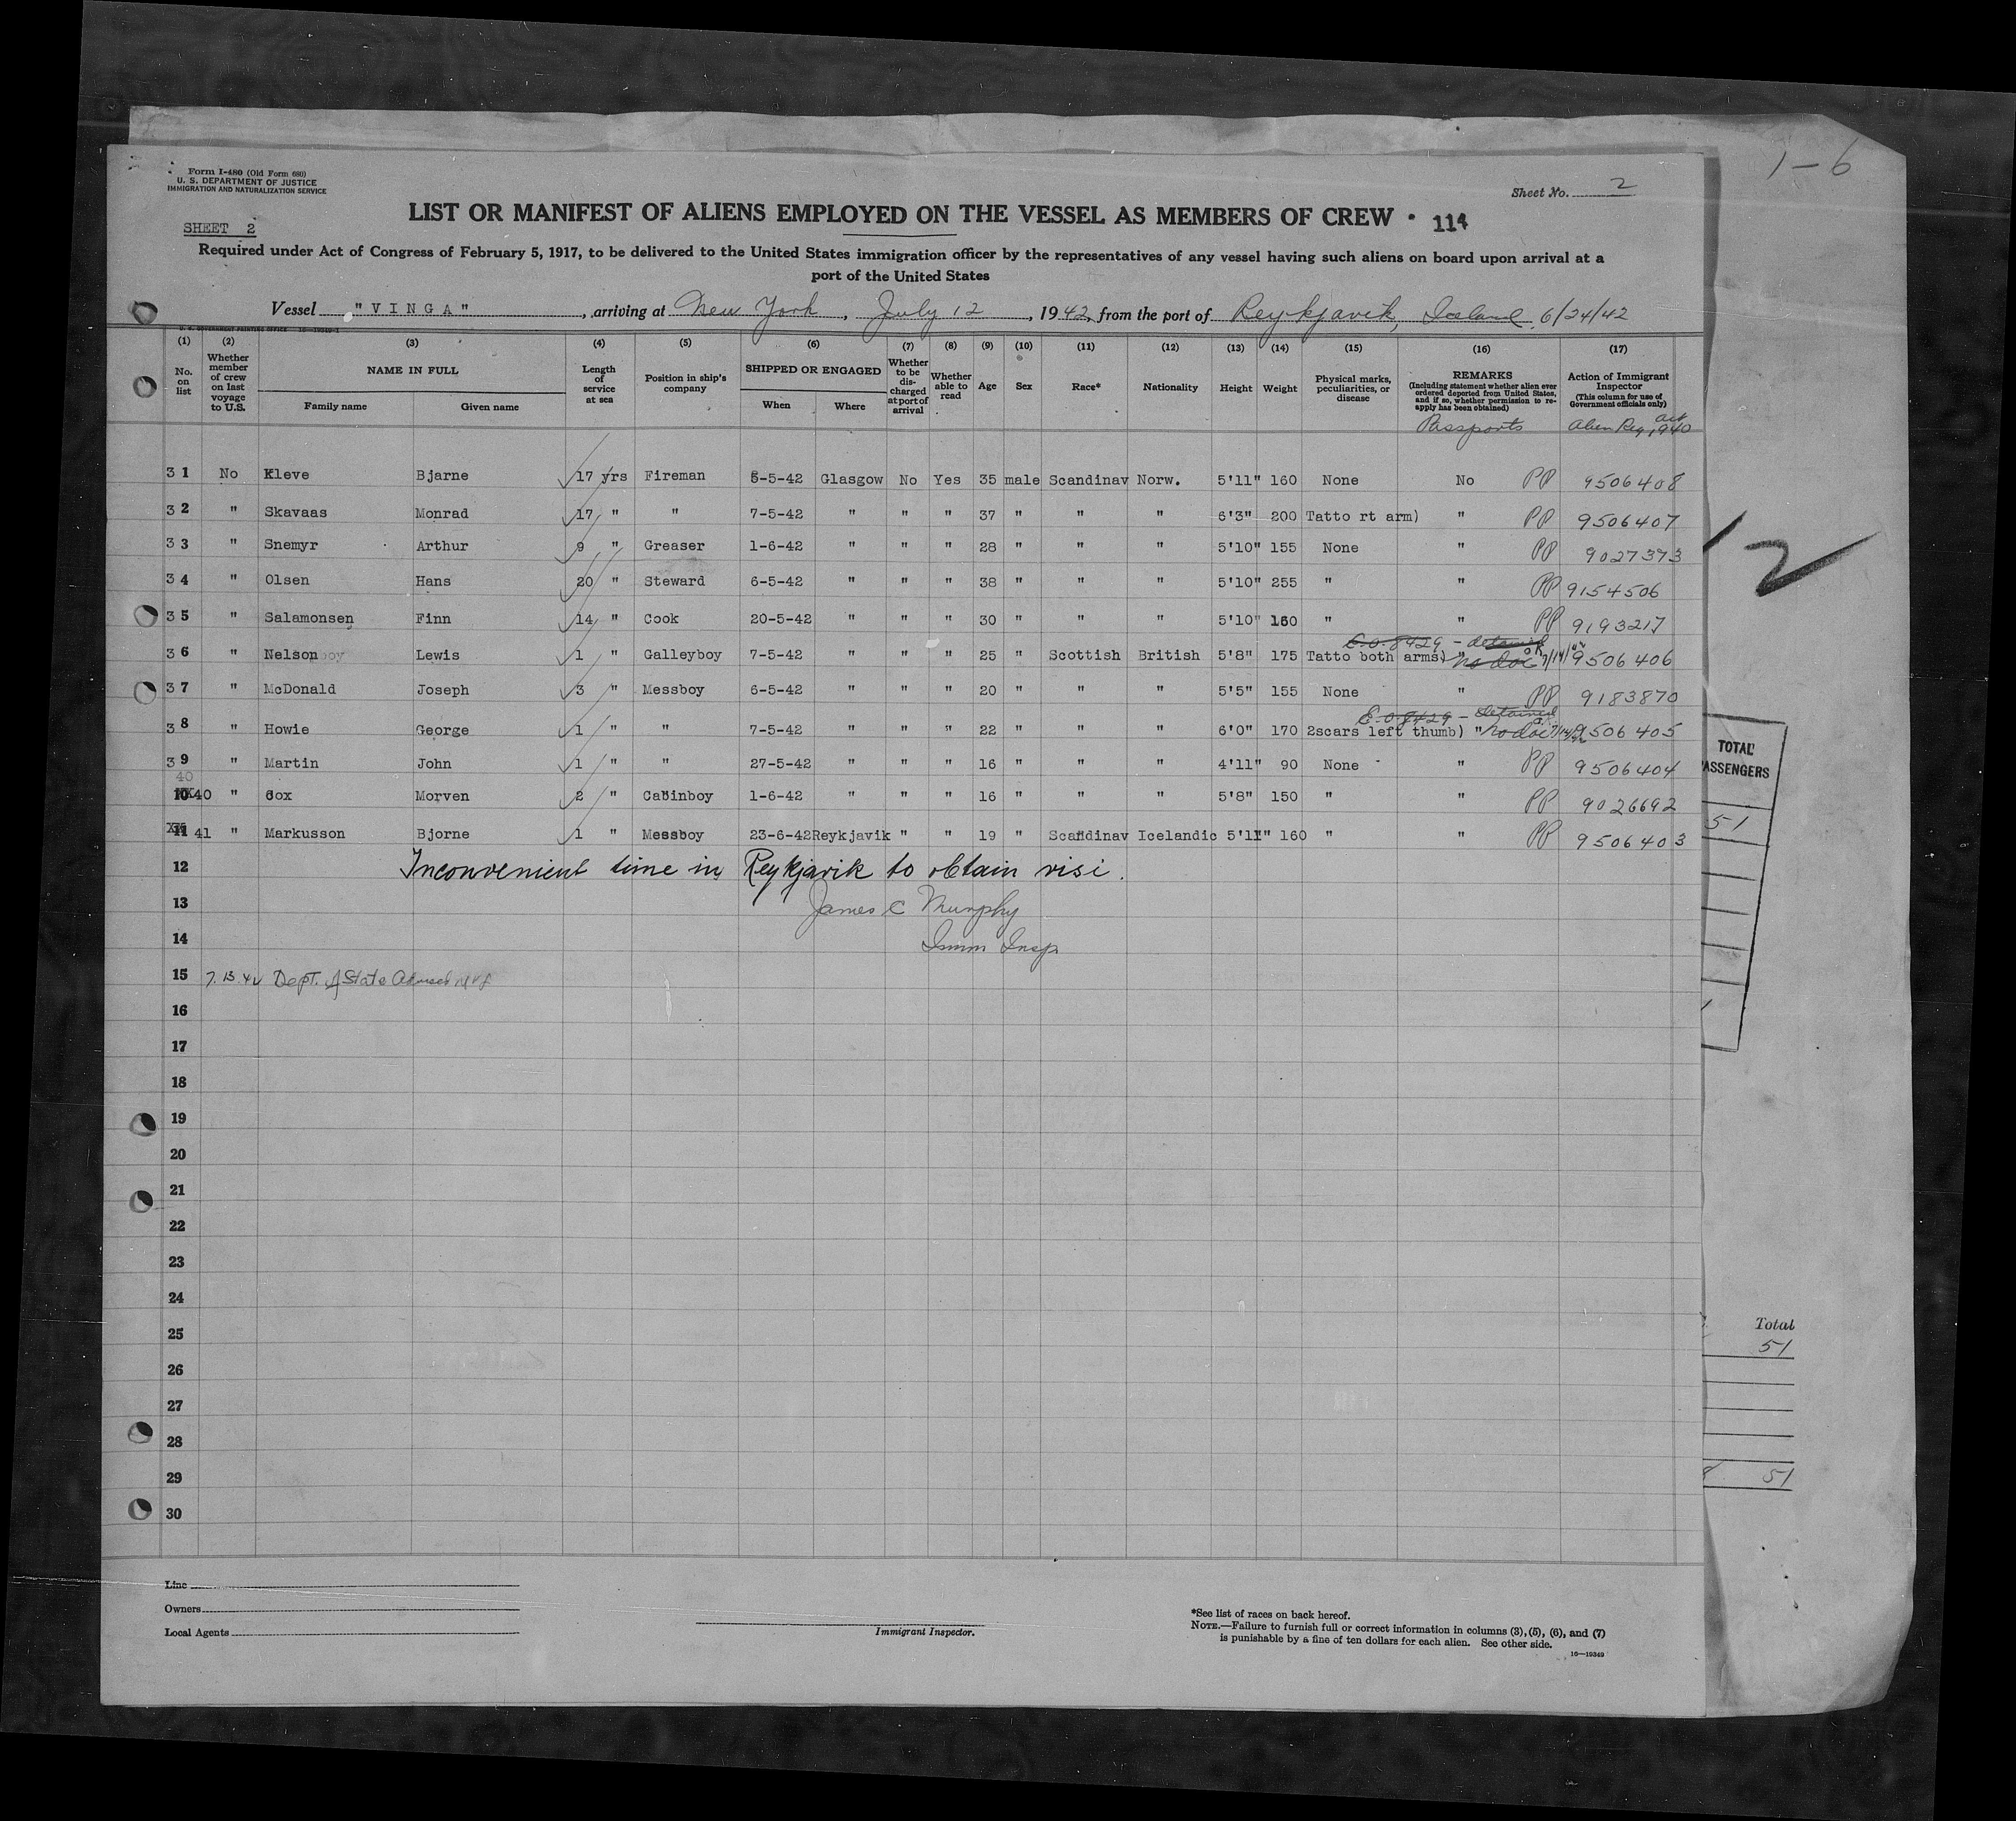 1-6
Form I-480 (Old Form 680)
U. S. DEPARTMENT OF JUSTICE
IMMIGRATION AND NATURALIZATION SERVICE
Sheet No. 2
SHEET 2
LIST OR MANIFEST OF ALIENS EMPLOYED ON THE VESSEL AS MEMBERS OF CREW 114
Required under Act of Congress of February 5, 1917, to be delivered to the United States immigration officer by the representatives of any vessel having such aliens on board upon arrival at a
port of the United States
Vessel "VINGA", arriving at New York, July 12, 1942, from the port of Reykjavik, Iceland, 6/24/42
(1) (2) (3) (4) (5) (6) (7) (8) (9) (10) (11) (12) (13) (14) (15) (16) (17)
No. on list
Whether member of crew on last voyage to U.S.
NAME IN FULL
Family name Given name
Length of service at sea
Position in ship's company
SHIPPED OR ENGAGED
When Where
Whether to be discharged at port of arrival
Whether able to read
Age
Sex
Race*
Nationality
Height
Weight
Physical marks, peculiarities, or disease
REMARKS
(Including statement whether alien ever ordered deported from United States, and if so, whether permission to re-apply has been obtained)
Passports
Action of Immigrant Inspector
(This column for use of Government officials only)
Alien Reg. act 1940
3 1 No Kleve Bjarne 17 yrs Fireman 5-5-42 Glasgow No Yes 35 male Scandinav Norw. 5'11" 160 None No PP 9506408
3 2 " Skavaas Monrad 17 " " 7-5-42 " " " 37 " " " 6'3" 200 Tatto rt arm) " PP 9506407
3 3 " Snemyr Arthur 9 " Greaser 1-6-42 " " " 28 " " " 5'10" 155 None " PP 9027373
3 4 " Olsen Hans 20 " Steward 6-5-42 " " " 38 " " " 5'10" 255 " " PP 9154506
3 5 " Salamonsen Finn 14 " Cook 20-5-42 " " " 30 " " " 5'10" 160 " " PP 9193217
E.O. 8429 - detained
3 6 " Nelson Lewis 1 " Galleyboy 7-5-42 " " " 25 " Scottish British 5'8" 175 Tatto both arms) " no doc OK 7/14/42 9506406
3 7 " McDonald Joseph 3 " Messboy 6-5-42 " " " 20 " " " 5'5" 155 None " PP 9183870
E.O. 8429 - detained
3 8 " Howie George 1 " " 7-5-42 " " " 22 " " " 6'0" 170 2scars left thumb) " no doc 7/14/42 9506405
3 9 " Martin John 1 " " 27-5-42 " " " 16 " " " 4'11" 90 None " PP 9506404
40
10 40 " Cox Morven 2 " Cabinboy 1-6-42 " " " 16 " " " 5'8" 150 " " PP 9026692
11 41 " Markusson Bjorne 1 " Messboy 23-6-42 Reykjavik " " 19 " Scandinav Icelandic 5'11" 160 " " PP 9506403
12 Inconvenient time in Reykjavik to obtain visi.
13 James C Murphy
14 Imm Insp
15 7.13.42 Dept. of State Advised
16
17
18
19
20
21
22
23
24
25
26
27
28
29
30
12
TOTAL
PASSENGERS
51
Total
51
51
Line
Owners
Local Agents
Immigrant Inspector.
*See list of races on back hereof.
NOTE.—Failure to furnish full or correct information in columns (3), (5), (6), and (7)
is punishable by a fine of ten dollars for each alien. See other side.
16—19349